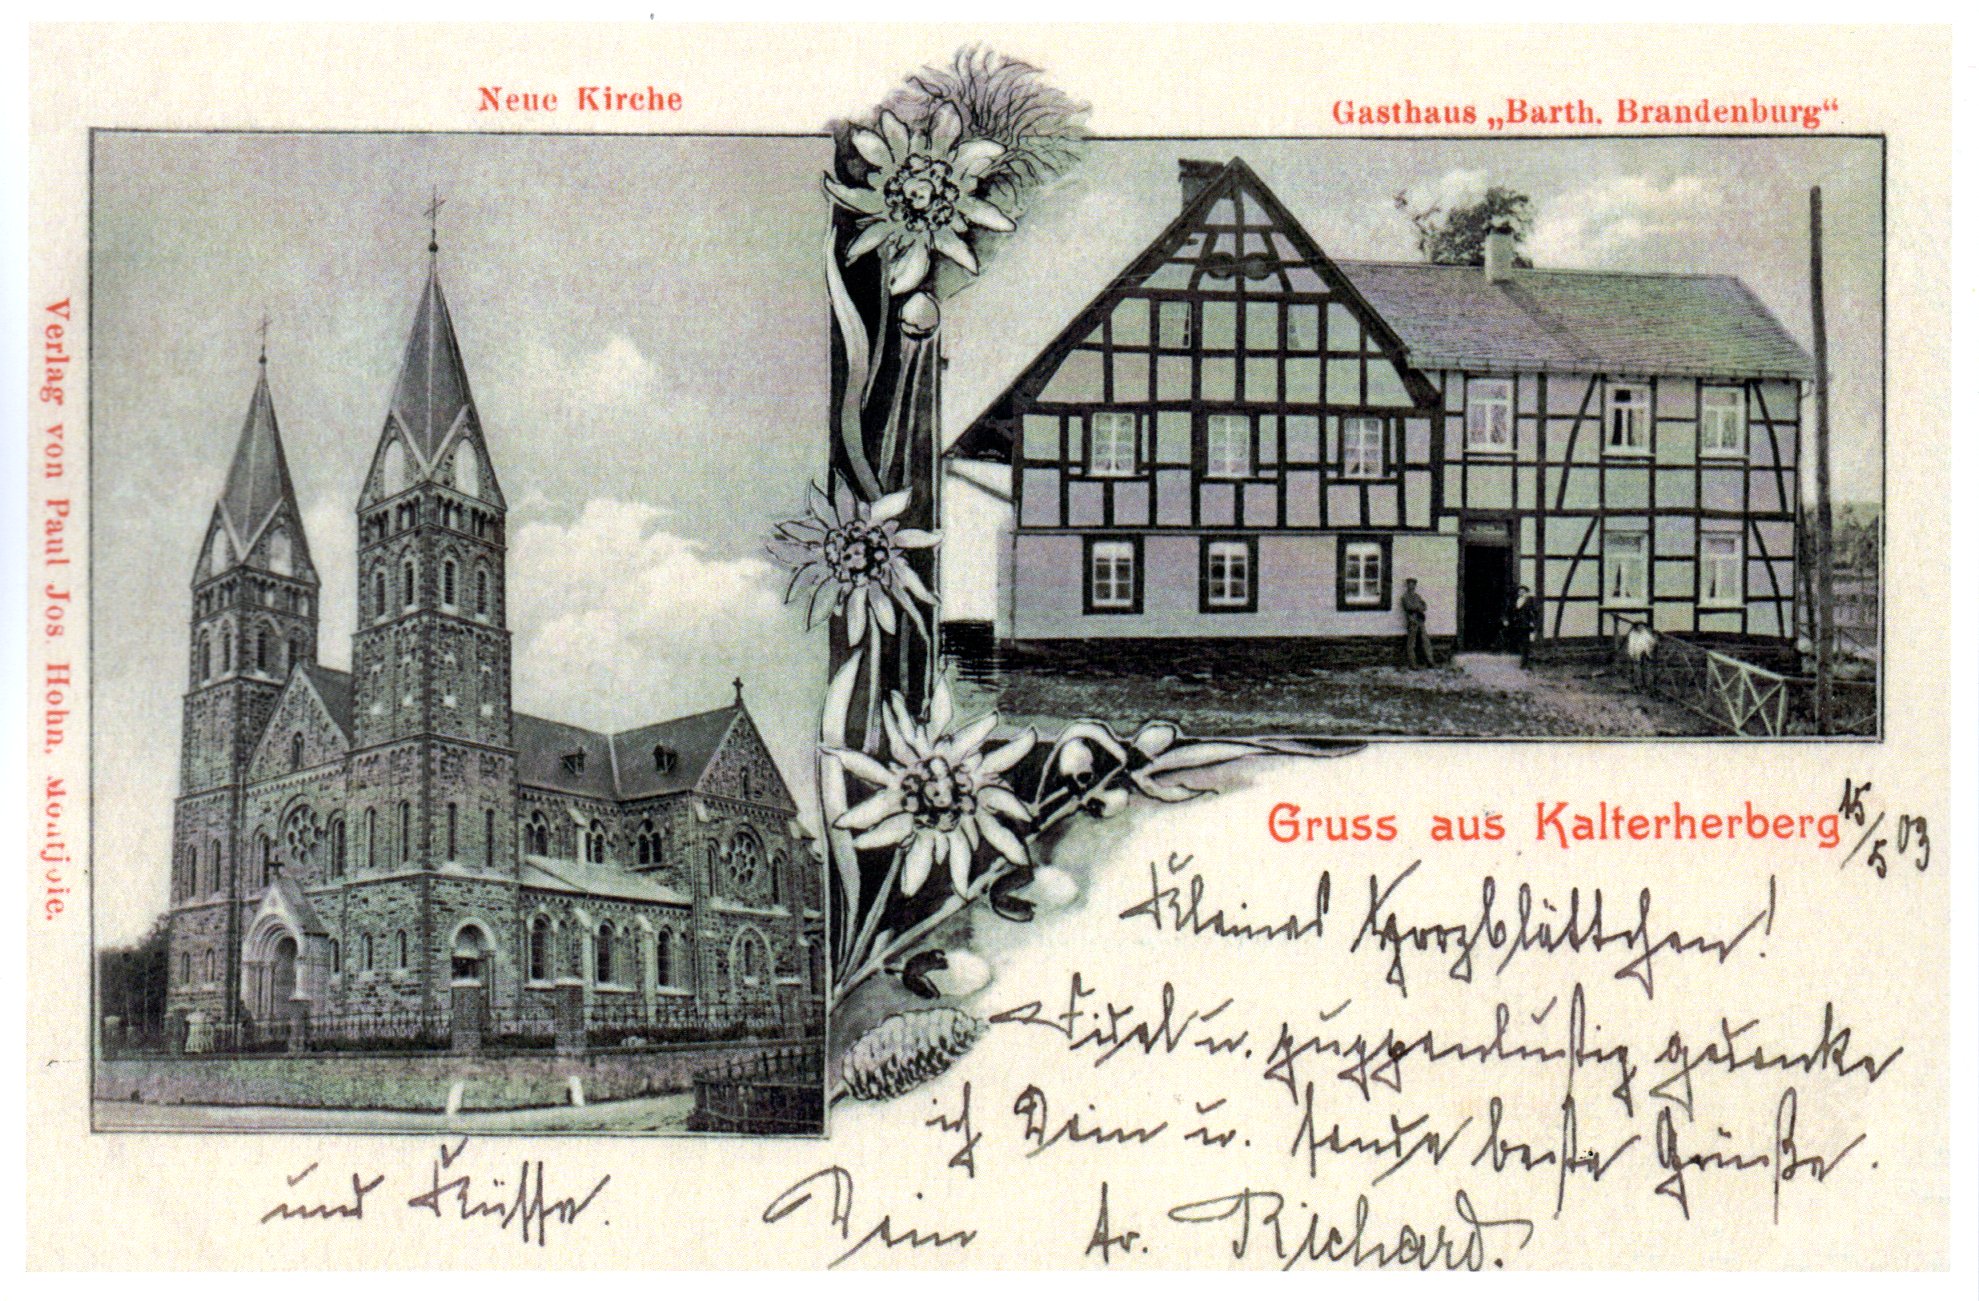 Neue Kirche
Gasthaus „Barth. Brandenburg“
Verlag von Paul Jos. Hohn, Montjoie.
Gruss aus Kalterherberg
15/5 03
Kleines Herzblättchen!
Fidel u. puppenlustig gedenke
ich Dein u. sende beste Grüße.
und Küsse.
Dein tr. Richard.